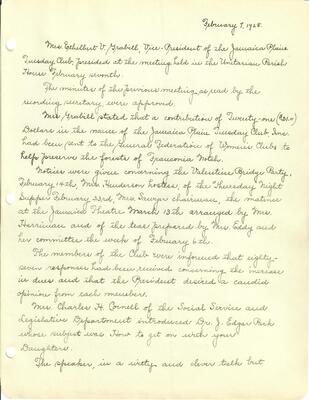 February 7, 1928.
Mrs. Ethelbert V. Grabill, Vice-President of the Jamaica Plain
Tuesday Club, presided at the meeting held in the Unitarian Parish
House February seventh.
The minutes of the previous meeting as read by the
recording secretary were approved.
Mrs. Grabill stated that a contribution of Twenty-one
Dollars in the name of the Jamaica Plain Tuesday Club Inc.
had been sent to the General Federation of Women's Clubs to
help preserve the forests of Franconia Notch.
Notices were given concerning the Valentine Bridge Party,
February 14th, Mrs. Henderson hostess, of the Thursday Night
Supper February 23rd, Mrs. chairman, the matinee
at the Jamaica Theatre March 13th arranged by Mrs.
Harriman and of the tea prepared by Mrs. Eddy and
her committee the week of February 6th.
The members of the Club were informed that eighty-
seven responses had been received concerning the increase
in dues and that the President desired a candid
opinion from each member.
Mrs. Charles H. Cornell of the Social Service and
Legislative Department introduced Dr. J. Edgar Park
whose subject was How to get on with your
Daughters.
The speaker, in a witty and clever talk but